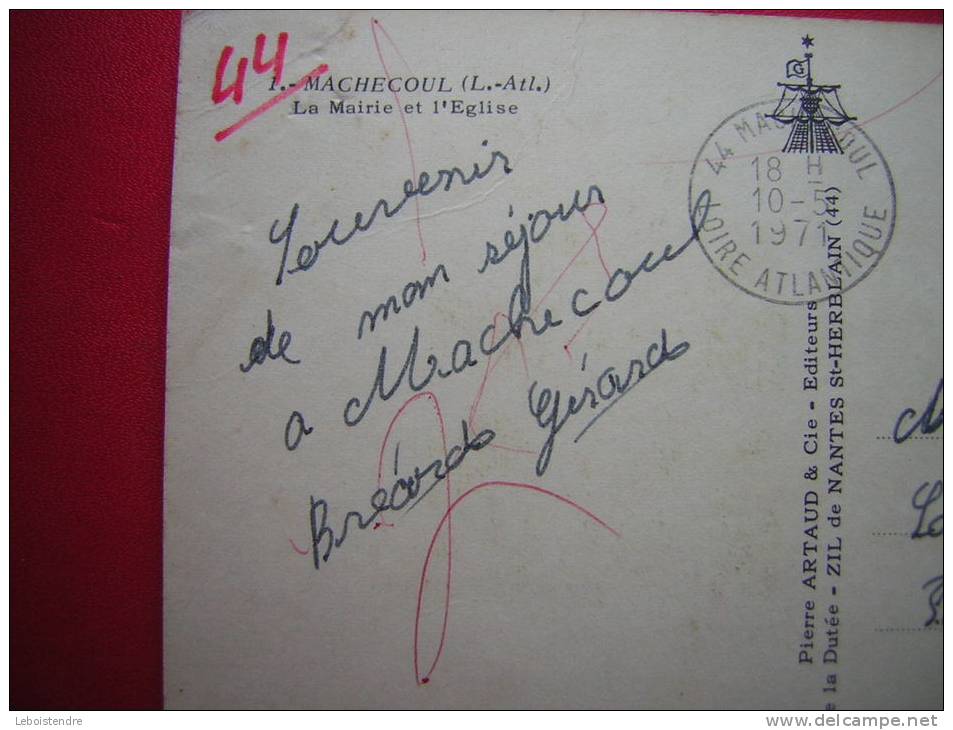 44
1.- MACHECOUL (L.-Atl.)
La Mairie et l'Eglise
Souvenir
de mon séjour
a Machecoul
Brécard Gérard
44 MACHECOUL
18 H
10-5
1971
LOIRE ATLANTIQUE
Pierre ARTAUD & Cie - Editeurs
e la Dutée - ZIL de NANTES St-HERBLAIN (44)
Leboistendre
www.delcampe.net